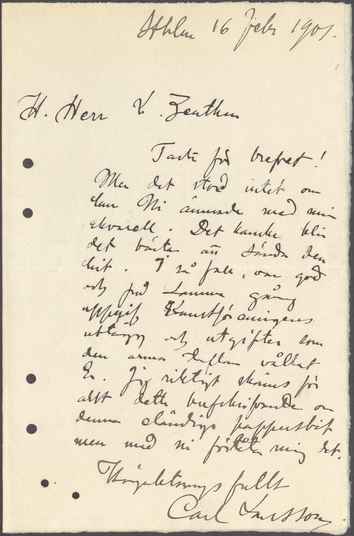 Sthlm 16 Febr 1901.
H. Herr L. Zeuthen
Tack för brefvet!
Men det stod intet om
hur Ni ämnade med min
akvarell. Det kanske blir
det bästa att sända den
hit. I så fall, var god
och på samma gång
uppgif Konstföreningens
utlägg och utgifter som
den arma taflan vållat
Er. Jag riktigt skäms för
allt detta brefskrifvande om
denna eländiga pappersbit
men med ni förlåter mig det.
Högaktningsfullt
Carl Larsson